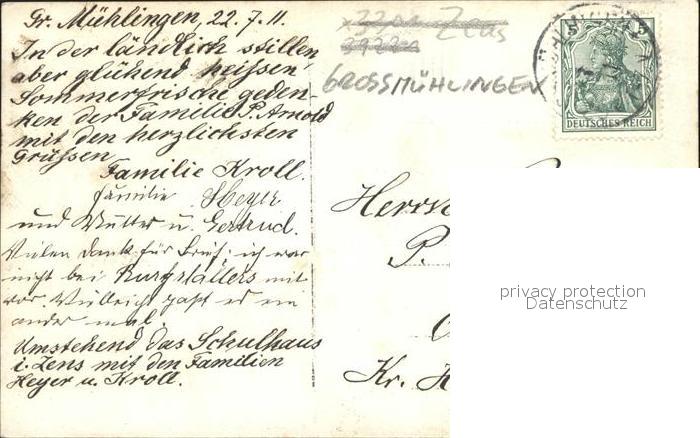 Gr. Mühlingen, 22. 7. 11.
In der ländlich stillen
aber glühend heissen
Sommerfrische geden-
ken der Familie P. Arnold
mit den herzlichsten
Grüssen
Familie Kroll.
Familie Heyer
und Mutter u. Gertrud.
Vielen Dank für Brief; ich war
nicht bei Burgstallers mit
vor. Vielleicht paßt es ein
ander mal.
Umstehend das Schulhaus
i. Zens mit den Familien
Heyer u. Kroll.
Zens
GROSSMÜHLINGEN
5 5
DEUTSCHES REICH
Herrn
P.
Kr.
privacy protection
Datenschutz